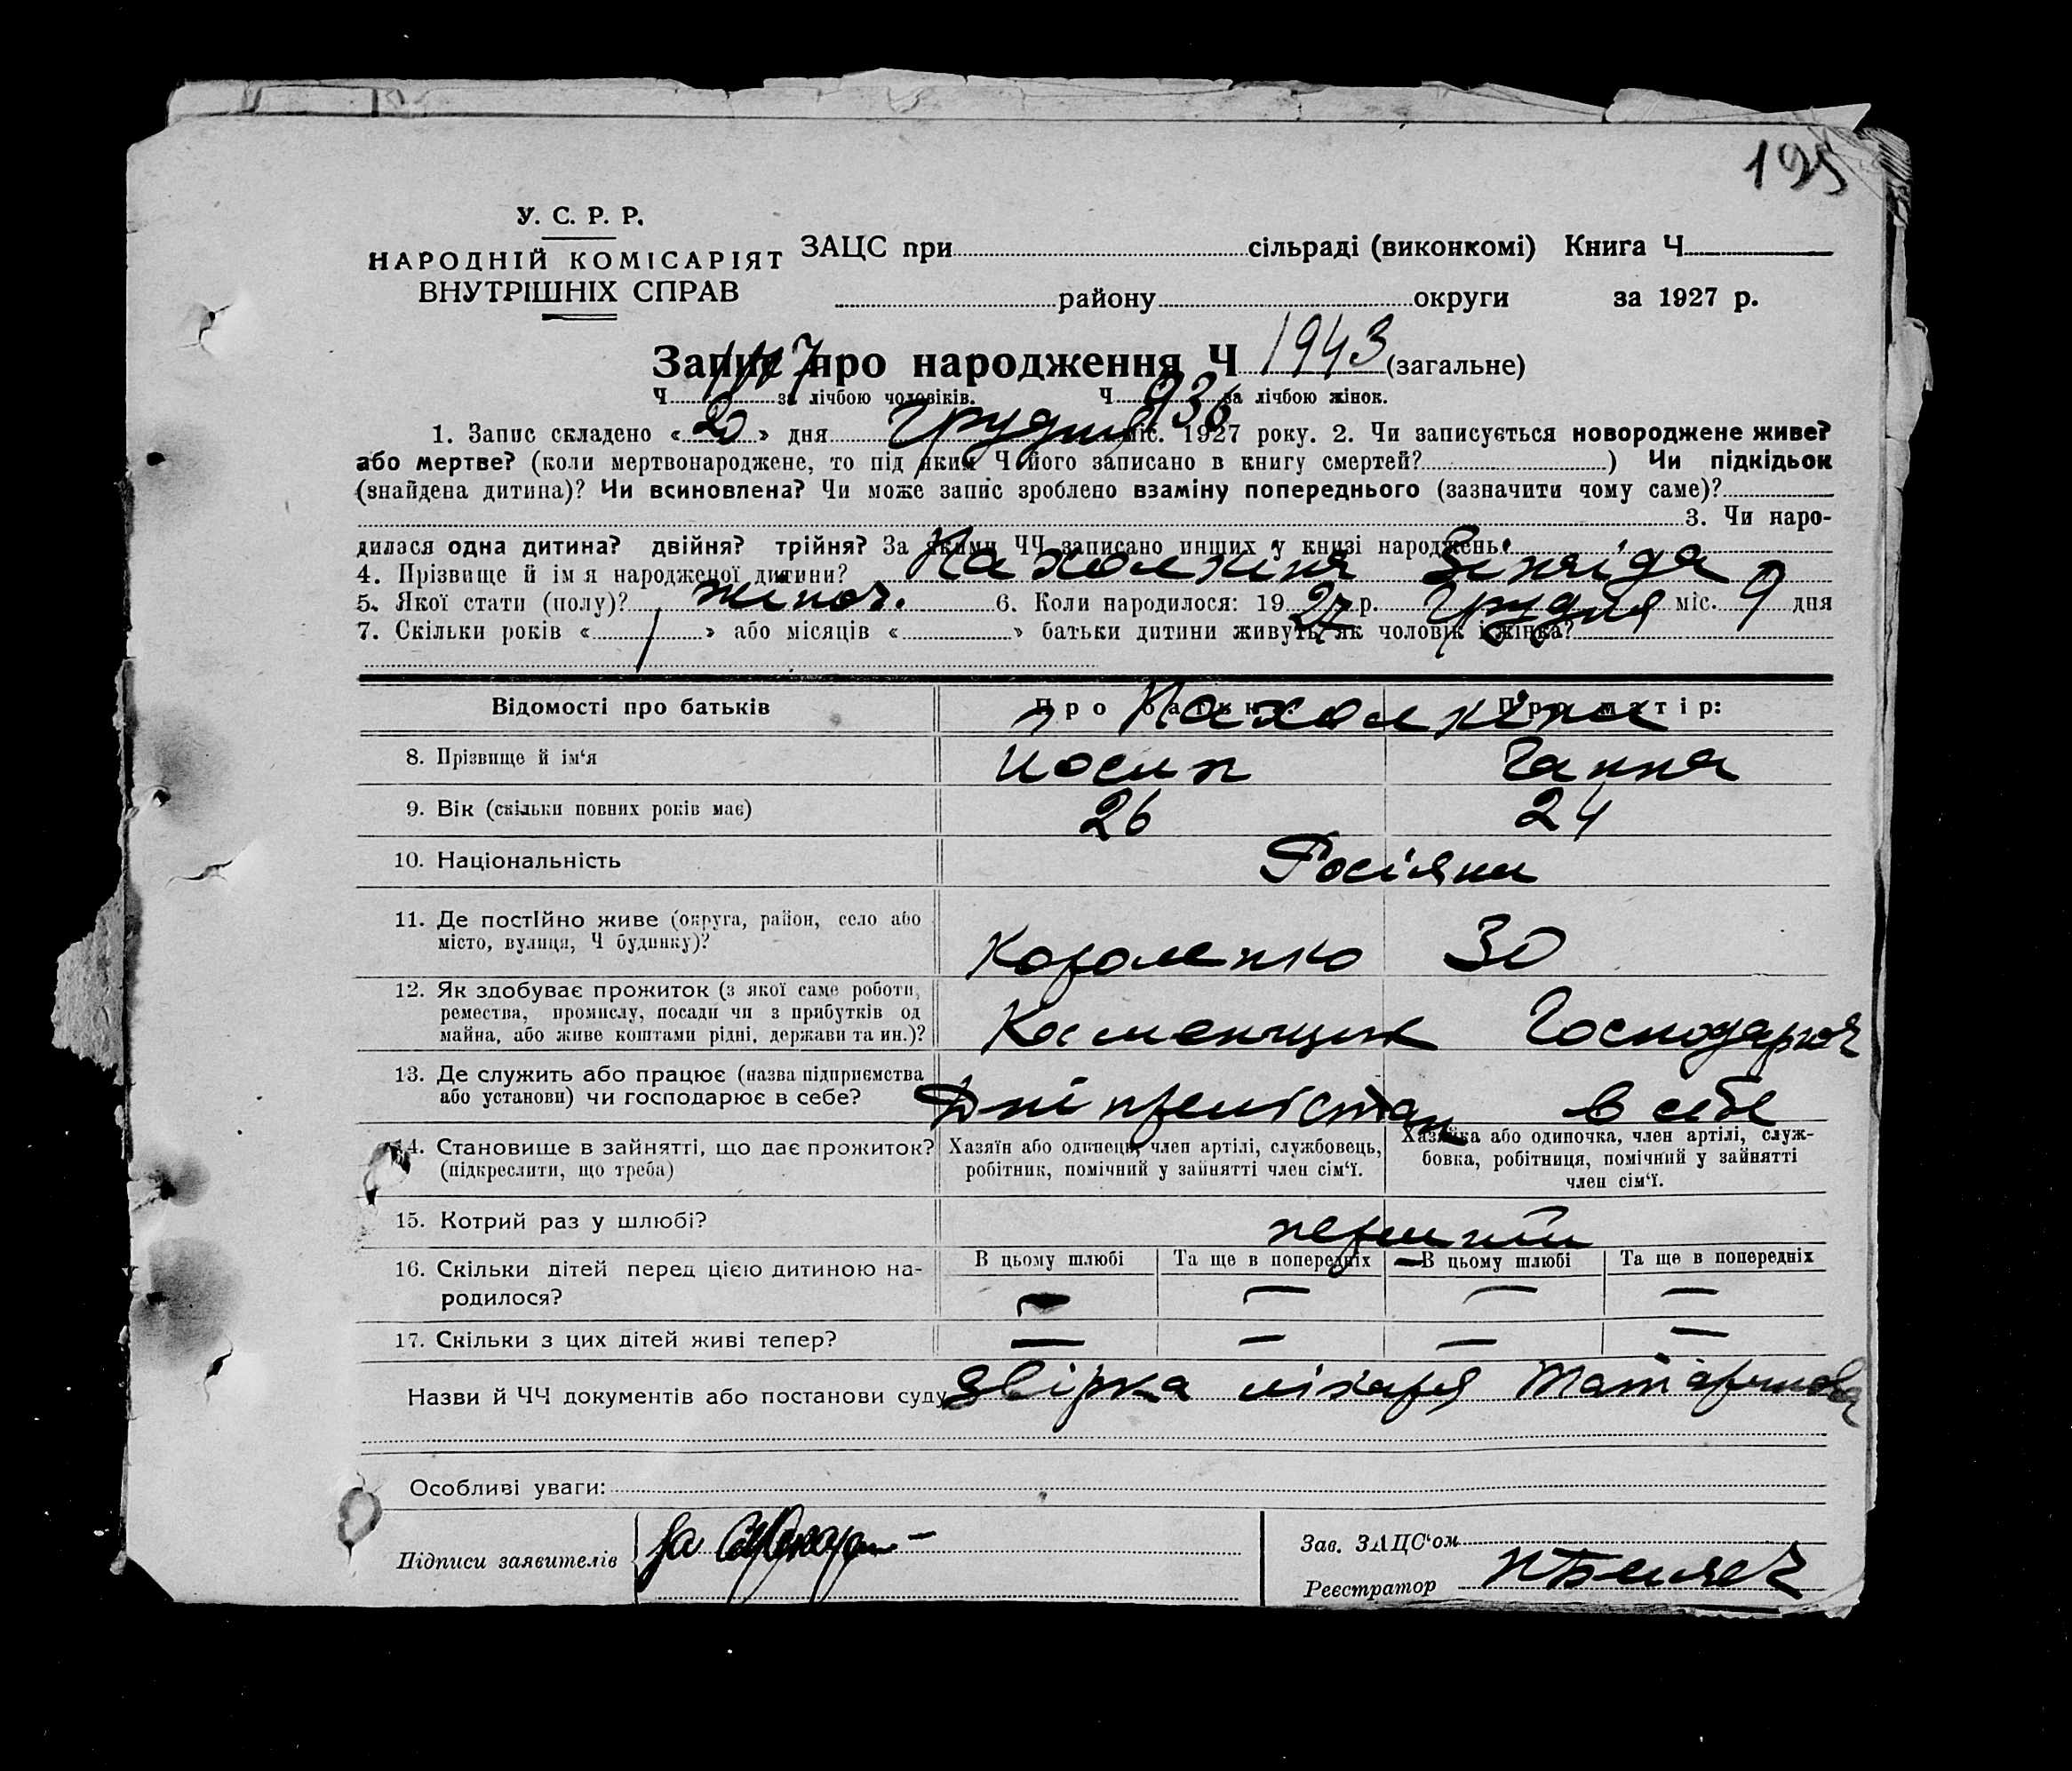 195
У. С. Р. Р.
НАРОДНІЙ КОМІСАРІЯТ
ВНУТРІШНІХ СПРАВ
ЗАЦС при сільраді (виконкомі) Книга Ч
району округи за 1927 р.
Запис про народження Ч 1943 (загальне)
Ч за лічбою чоловіків. Ч 936 за лічбою жінок.
1. Запис складено « 20 » дня Грудня міс. 1927 року. 2. Чи записується новороджене живе?
або мертве? (коли мертвонароджене, то під яким Ч його записано в книгу смертей? ) Чи підкідьок
(знайдена дитина)? Чи всиновлена? Чи може запис зроблено взаміну попереднього (зазначити чому саме)?
3. Чи наро-
дилася одна дитина? двійня? трійня? За якими ЧЧ записано инших у книзі народжень?
4. Прізвище й ім я народженої дитини? Пахолкіна Зінаіда
5. Якої стати (полу)? жіноч. 6. Коли народилося: 19 27 р. Грудня міс. 9 дня
7. Скільки років « » або місяців « » батьки дитини живуть як чоловік і жінка?
Відомості про батьків Про батька: Про матір:
Пахолкіни
8. Прізвище й ім‘я Иосип Ганна
9. Вік (скільки повних років має) 26 24
10. Національність Росіяни
11. Де постійно живе (округа, район, село або
місто, вулиця, Ч будинку)? Короленко 30
12. Як здобуває прожиток (з якої саме роботи,
ремества, промислу, посади чи з прибутків од
майна, або живе коштами рідні, держави та ин.)? Каменщик Господарює
13. Де служить або працює (назва підприємства
або установи) чи господарює в себе? в себе
14. Становище в зайнятті, що дає прожиток?
(підкреслити, що треба)
Хазяїн або одинець, член артілі, службовець,
робітник, помічний у зайнятті член сім‘ї.
Хазяйка або одиночка, член артілі, служ-
бовка, робітниця, помічний у зайнятті
член сім‘ї.
15. Котрий раз у шлюбі? перший
16. Скільки дітей перед цією дитиною на-
родилося?
В цьому шлюбі Та ще в попередніх В цьому шлюбі Та ще в попередніх
— — — —
17. Скільки з цих дітей живі тепер? — — — —
Назви й ЧЧ документів або постанови суду звірка лікаря
Особливі уваги:
Підписи заявителів
Зав. ЗАЦС‘ом
Реєстратор